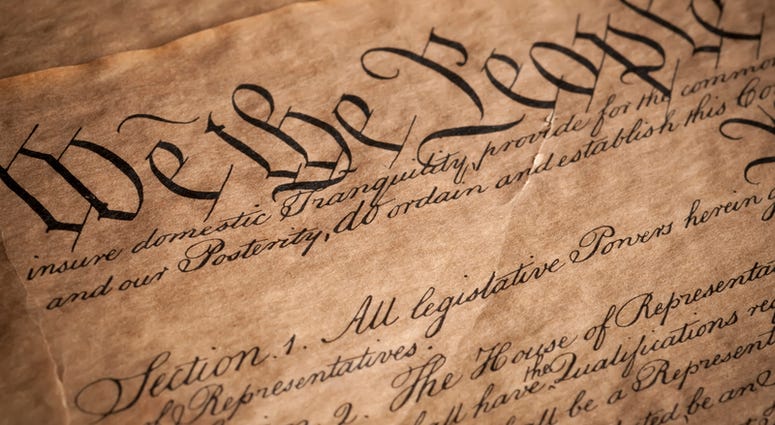 We the People
insure domestic Tranquility, provide for the common
and our Posterity, do ordain and establish this Co
Section. 1. All legislative Powers herein g
of Representatives.
2. The House of Representa
hall have the Qualifications re
all be a Represent
be an